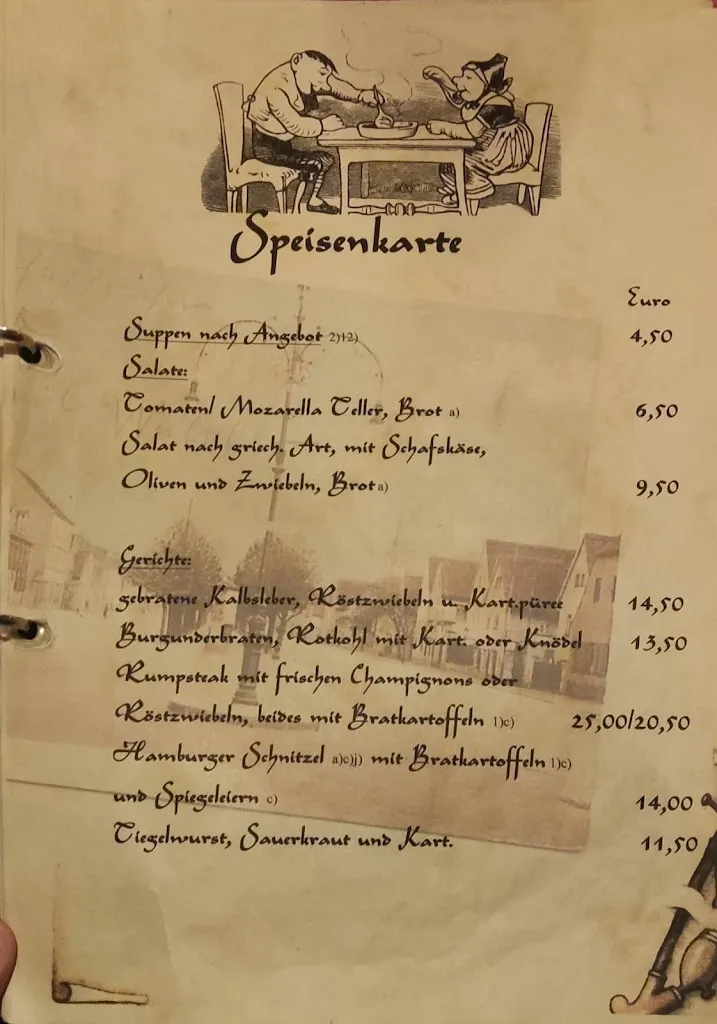 Speisenkarte
Euro
Suppen nach Angebot 2)12) 4,50
Salate:
Tomaten/ Mozarella Teller, Brot a) 6,50
Salat nach griech. Art, mit Schafskäse,
Oliven und Zwiebeln, Brot a) 9,50
Gerichte:
gebratene Kalbsleber, Röstzwiebeln u. Kart.püree 14,50
Burgunderbraten, Rotkohl mit Kart. oder Knödel 13,50
Rumpsteak mit frischen Champignons oder
Röstzwiebeln, beides mit Bratkartoffeln 1)c) 25,00/20,50
Hamburger Schnitzel a)c)j) mit Bratkartoffeln 1)c)
und Spiegeleiern c) 14,00
Tiegelwurst, Sauerkraut und Kart. 11,50